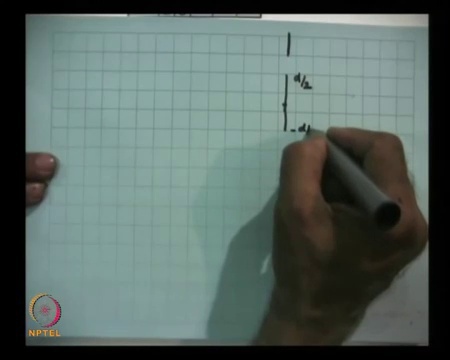 d/2
- d/
NPTEL